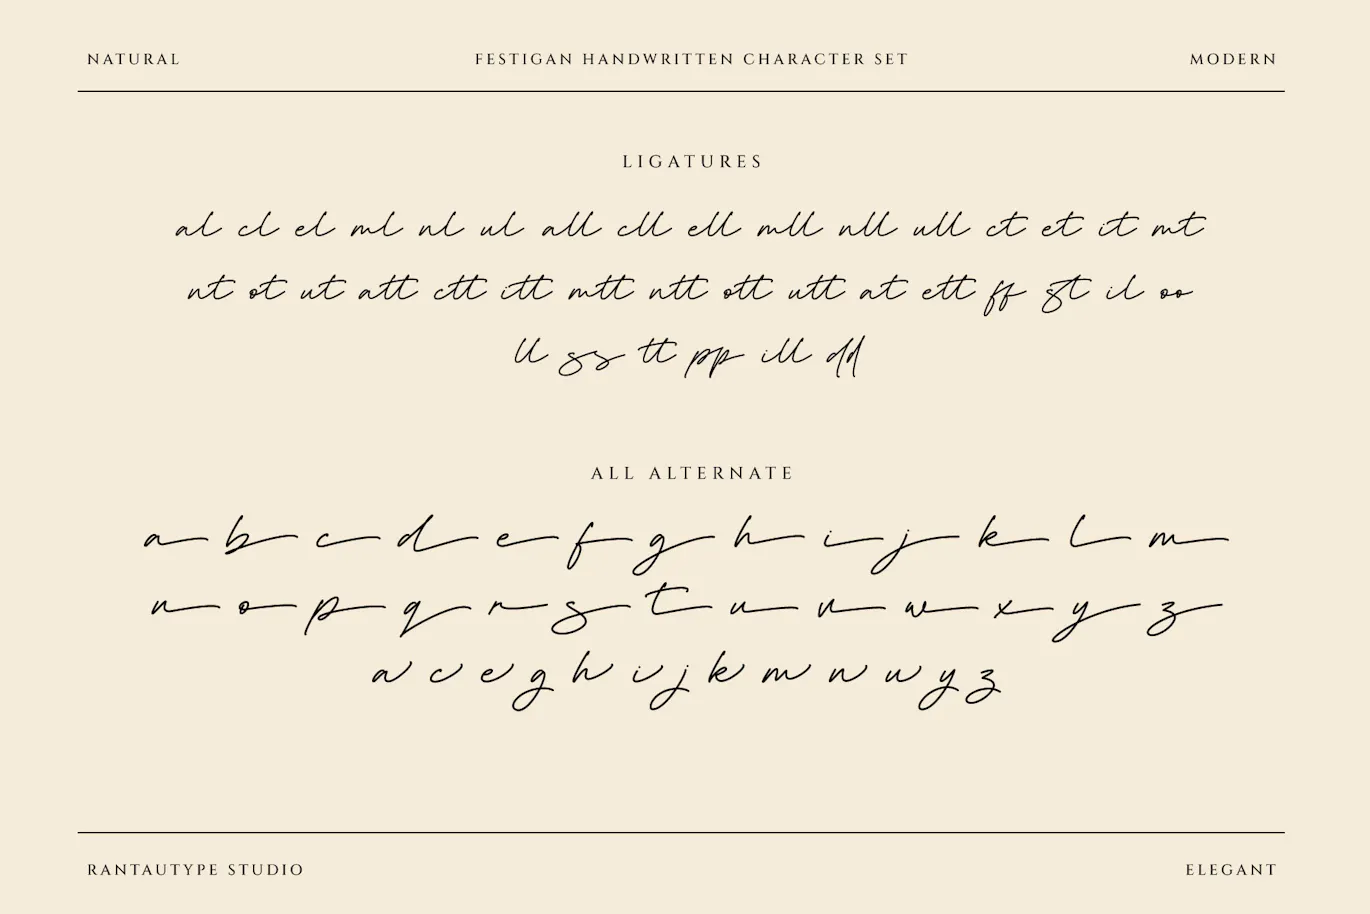 NATURAL FESTIGAN HANDWRITTEN CHARACTER SET MODERN
LIGATURES
al cl el ml nl ul all cll ell mll nll ull ct et it mt
nt ot ut att ctt itt mtt ntt ott utt at ett ff st il oo
ll ss tt pp ill dd
ALL ALTERNATE
a b c d e f g h i j k l m
n o p q r s t u v w x y z
a c e g h i j k m n u y z
RANTAUTYPE STUDIO ELEGANT